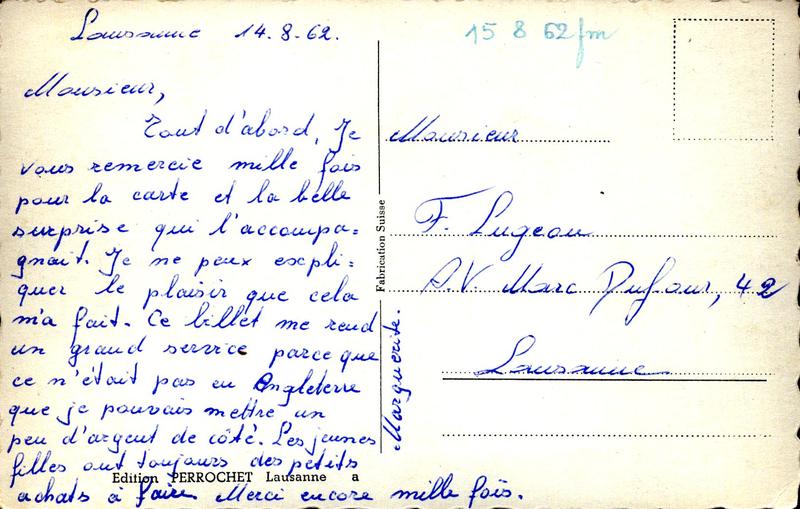 Lausanne 14.8.62.
Monsieur,
Tout d'abord, Je
vous remercie mille fois
pour la carte et la belle
surprise qui l'accompa=
gnait. Je ne peux expli=
quer le plaisir que cela
m'a fait. Ce billet me rend
un grand service parce que
ce n'était pas en Angleterre
que je pouvais mettre un
peu d'argent de côté. Les jeunes
filles ont toujours des petits
achats à faire Merci encore mille fois.
Marguerite.
Edition PERROCHET Lausanne a
Fabrication Suisse
15 8 62 fm
Monsieur
F. Lugeon
A.V. Marc Dufour, 42
Lausanne